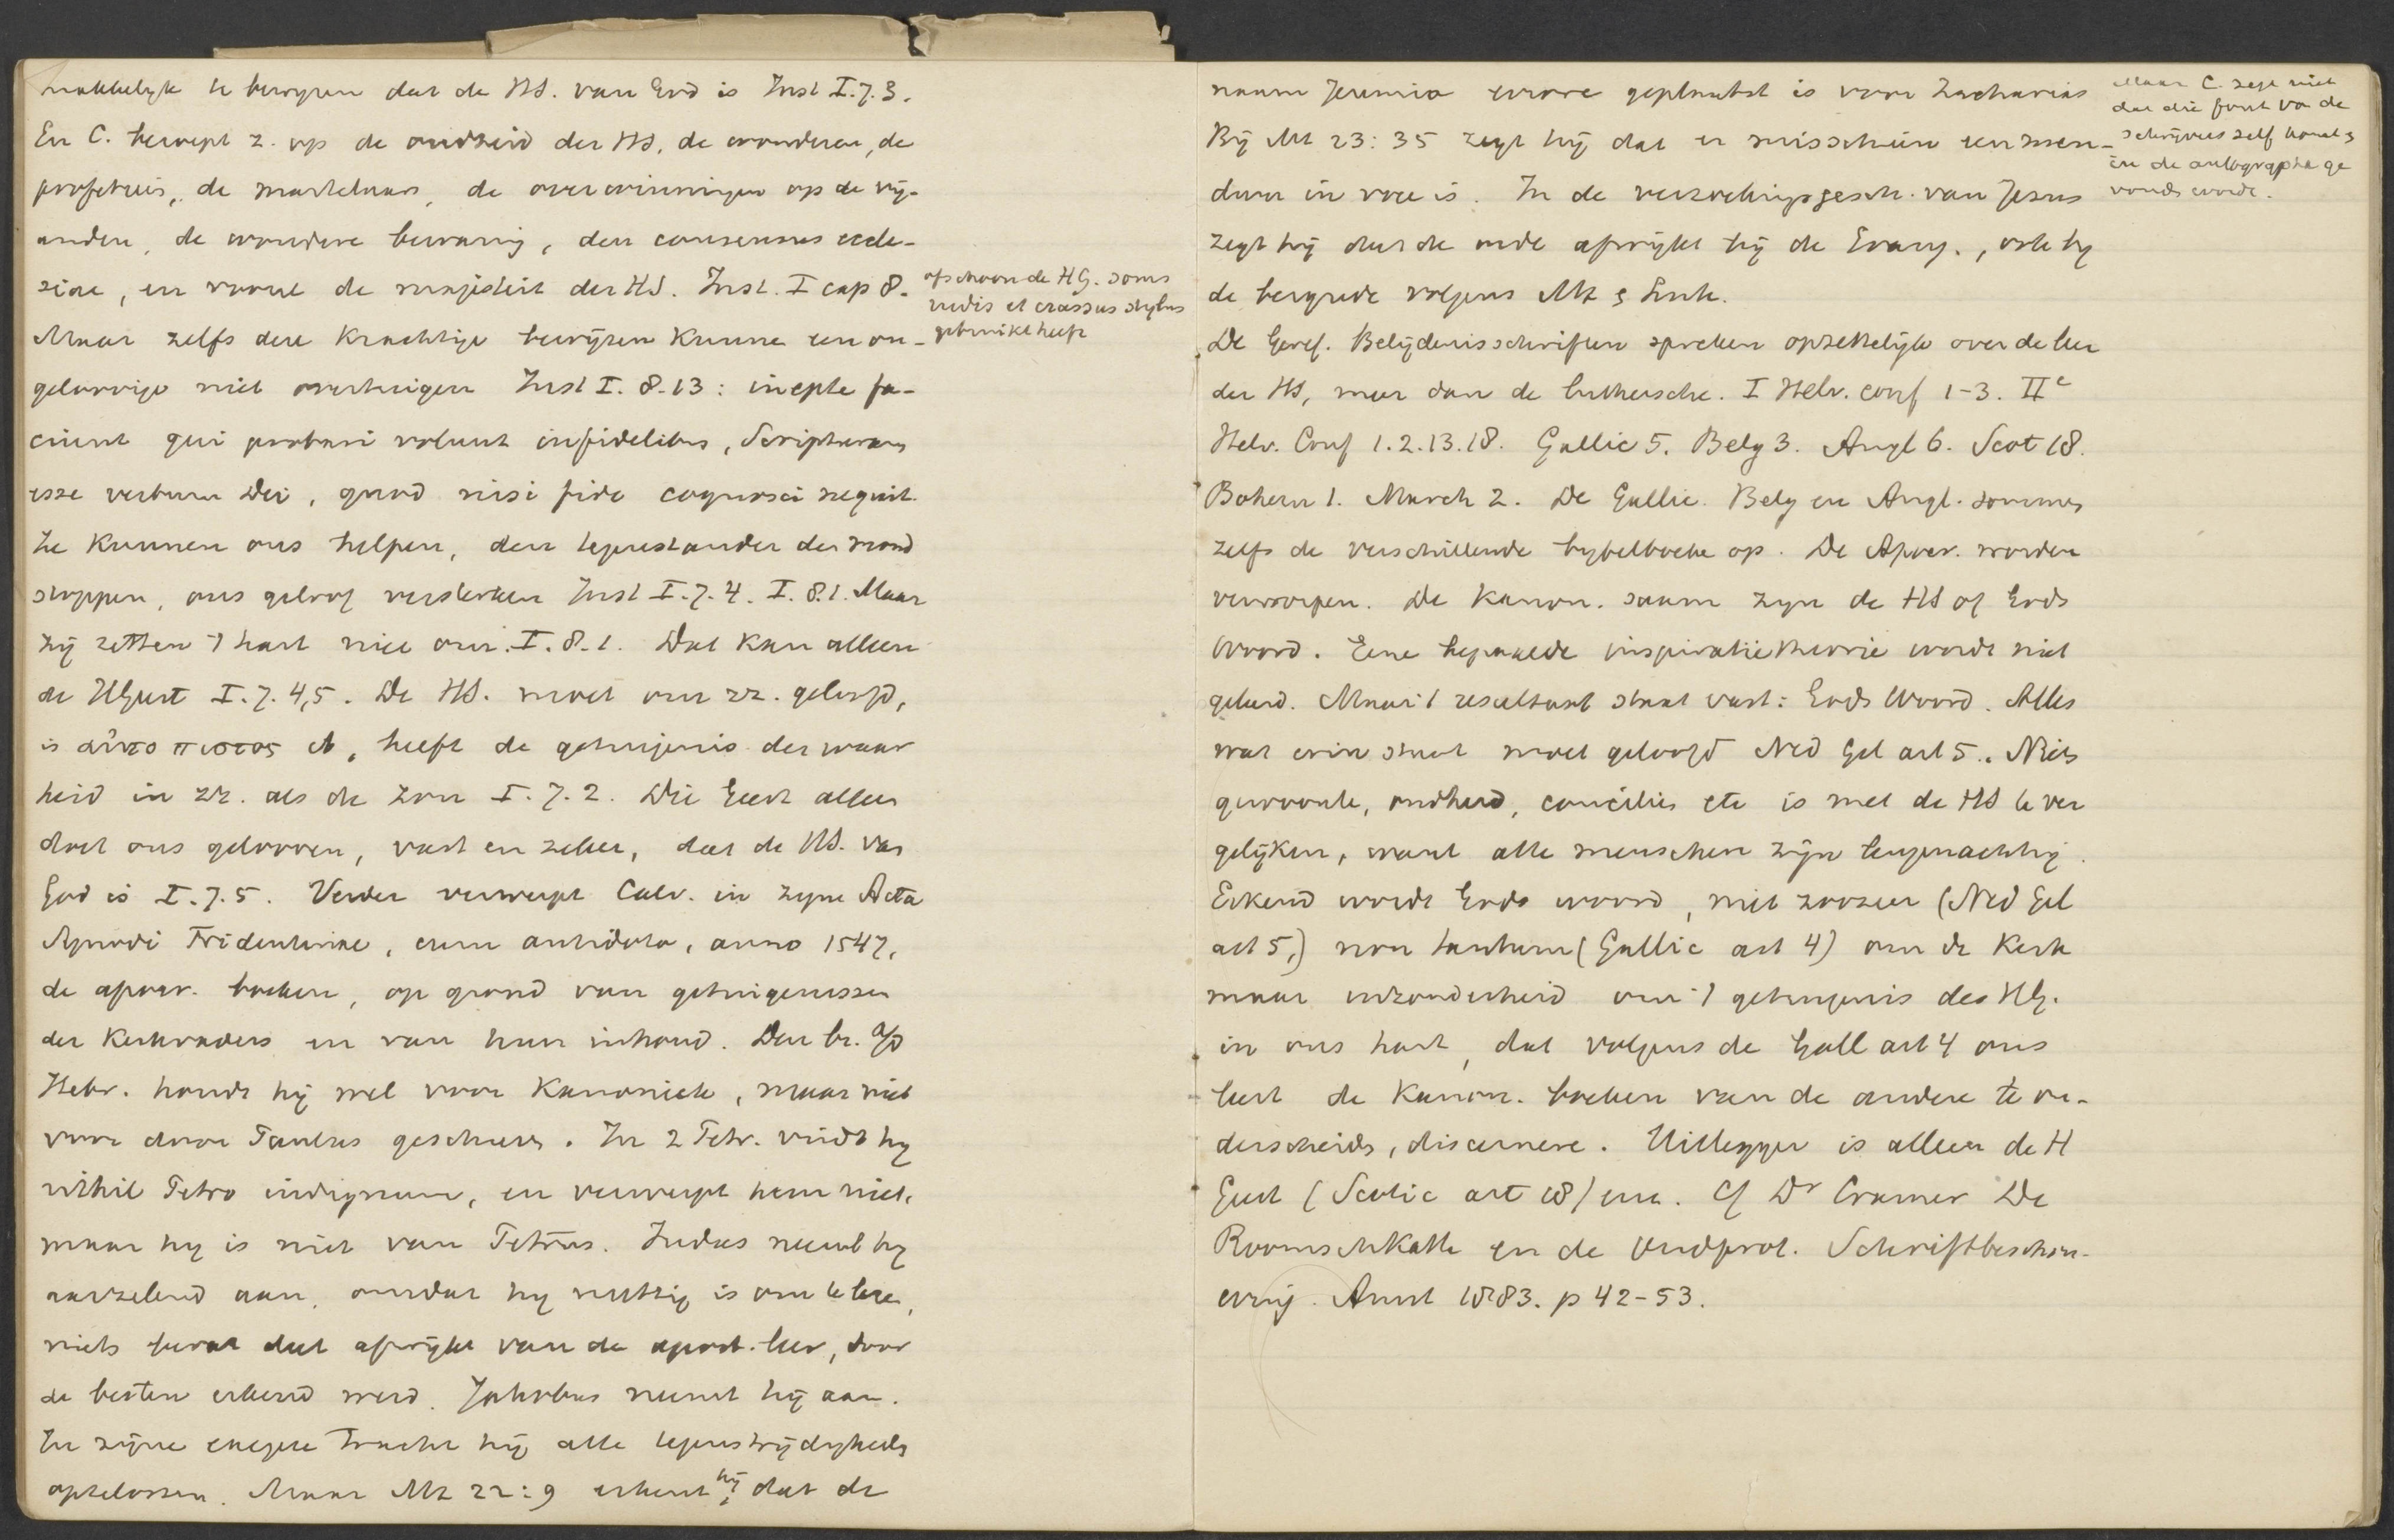 makkelyk te bewyzen dat de HS. van God is Inst I.7.3.
En C. beroept z. op de oudheid der HS, de wonderen, de
profetieën, de martelaars, de overwinningen op de vij-
anden, de wondere bewaring, den consensus eccle-
siae, en vooral de majesteit der HS. Inst. I cap 8.
ofschoon de HG. soms
rudis et crassus stylus
gebruikt heeft
Maar zelfs deze krachtige bewijzen kunnen een on-
geloovige niet overtuigen Inst I. 8.13: inepte fa-
ciunt qui probari volunt infidelibus, Scripturam
esse verbum Dei, quod nisi fide cognosci nequit.
Ze kunnen ons helpen, den tegenstander den mond
stoppen, ons geloof versterken Inst I.7.4. I.8.1. Maar
zij zetten 't hart niet om. I.8.1. Dat kan alleen
de HGeest I.7.4,5. De HS. moet om zz. geloofd,
is αὐτοπιστος, heeft de getuigenis der waar
heid in zz. als de zon I.7.2. Die Geest alleen
doet ons gelooven, vast en zeker, dat de HS. van
God is I.7.5. Verder verwerpt Calv. in zyne Acta
Synodi Tridentinae, cum antidoto, anno 1547,
de apocr. boeken, op grond van getuigenissen
der Kerkvaders en van hun inhoud. Den br. a/d
Hebr. houdt hij wel voor Kanoniek, maar niet
voor door Paulus geschreven. In 2 Petr. vindt hy
nihil Petro indignum, en verwerpt hem niet,
maar hy is niet van Petrus. Judas neemt hy
aarzelend aan, omdat hy nuttig is om te leze,
niets bevat dat afwijkt van de apost. leer, door
de besten erkend werd. Jakobus neemt hij aan.
In zijne exegese tracht hij alle tegenstrijdigheden
optelossen. Maar Mt 22:9 erkent hij, dat de
naam Jeremia errore geplaatst is voor Zacharias
Maar C. zegt niet
dat die fout van de
schrijvers zelf komt &
in de autographa ge
vonden wordt.
Bij Mt 23:35 zegt hij dat er misschien een men-
dum in voce is. In de verzoekingsgesch. van Jesus
zegt hij dat de orde afwijkt bij de Evang., ook by
de bergrede volgens Mt & Luk.
De Geref. Belijdenisschriften spreken opzettelijk over de leer
der HS, meer dan de luthersche. I Helv. conf 1-3. IIe
Helv. Conf 1.2.13.18. Gallic 5. Belg 3. Angl 6. Scot 18.
Bohem 1. March 2. De Gallic. Belg en Angl. sommen
zelfs de verschillende bybelboeken op. De Apocr. worden
verworpen. De Kanon. saam zyn de HS of Gods
Woord. Eene bepaalde inspiratietheorie wordt niet
geleerd. Maar 't resultaat staat vast: Gods Woord. Alles
wat erin staat moet geloofd Ned Gel art 5. Niets
gewoonte, oudheid, conciliën etc is met de HS te ver
gelijken, want alle menschen zijn leugenachtig.
Erkend wordt Gods woord, niet zoozeer (Ned Gel
art 5,) non tantum (Gallic art 4) om de Kerk
maar inzonderheid om 't getuigenis des HG.
in ons hart, dat volgens de Gall art 4 ons
leert de Kanon. boeken van de andere te on-
derscheiden, discernere. Uitlegger is alleen de H
Geest (Scotic art 18) enz. Cf Dr Cramer De
RoomschKath en de Oudprot. Schriftbeschou-
wing. Amst 1883. p 42-53.